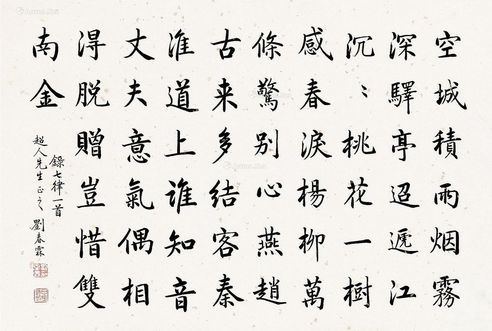 空城積雨烟霧
深驛亭迢遞江
沉〻桃花一樹
感春淚楊柳萬
條驚别心燕趙
古来多結客秦
淮道上誰知音
丈夫意氣偶相
得脱贈豈惜雙
南金
錄七律一首
超人先生正之 劉春霖